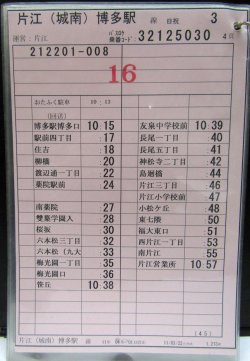 片江（城南）博多駅 線 日祝 3
運営：片江 乗務コード： 32125030 4
212201-008
16
おたふく駐車 10:13
(回送)
博多駅博多口 10:15
駅前四丁目 :17
住吉 :18
柳橋 :20
渡辺通一丁目 :22
薬院駅前 :24
南薬院 :27
雙葉学園入 :28
桜坂 :30
六本松三丁目 :32
六本松（九大 :33
梅光園一丁目 :35
梅光園口 :36
笹丘 10:38
友泉中学校前 10:39
長尾一丁目 :40
長尾五丁目 :41
神松寺二丁目 :42
島廻橋 :44
片江三丁目 :46
片江小学校前 :47
小松ケ丘 :48
東七隈 :50
福大東口 :51
西片江一丁目 :53
南片江 :55
片江営業所 10:57
(45)
片江（城南）博多駅 線